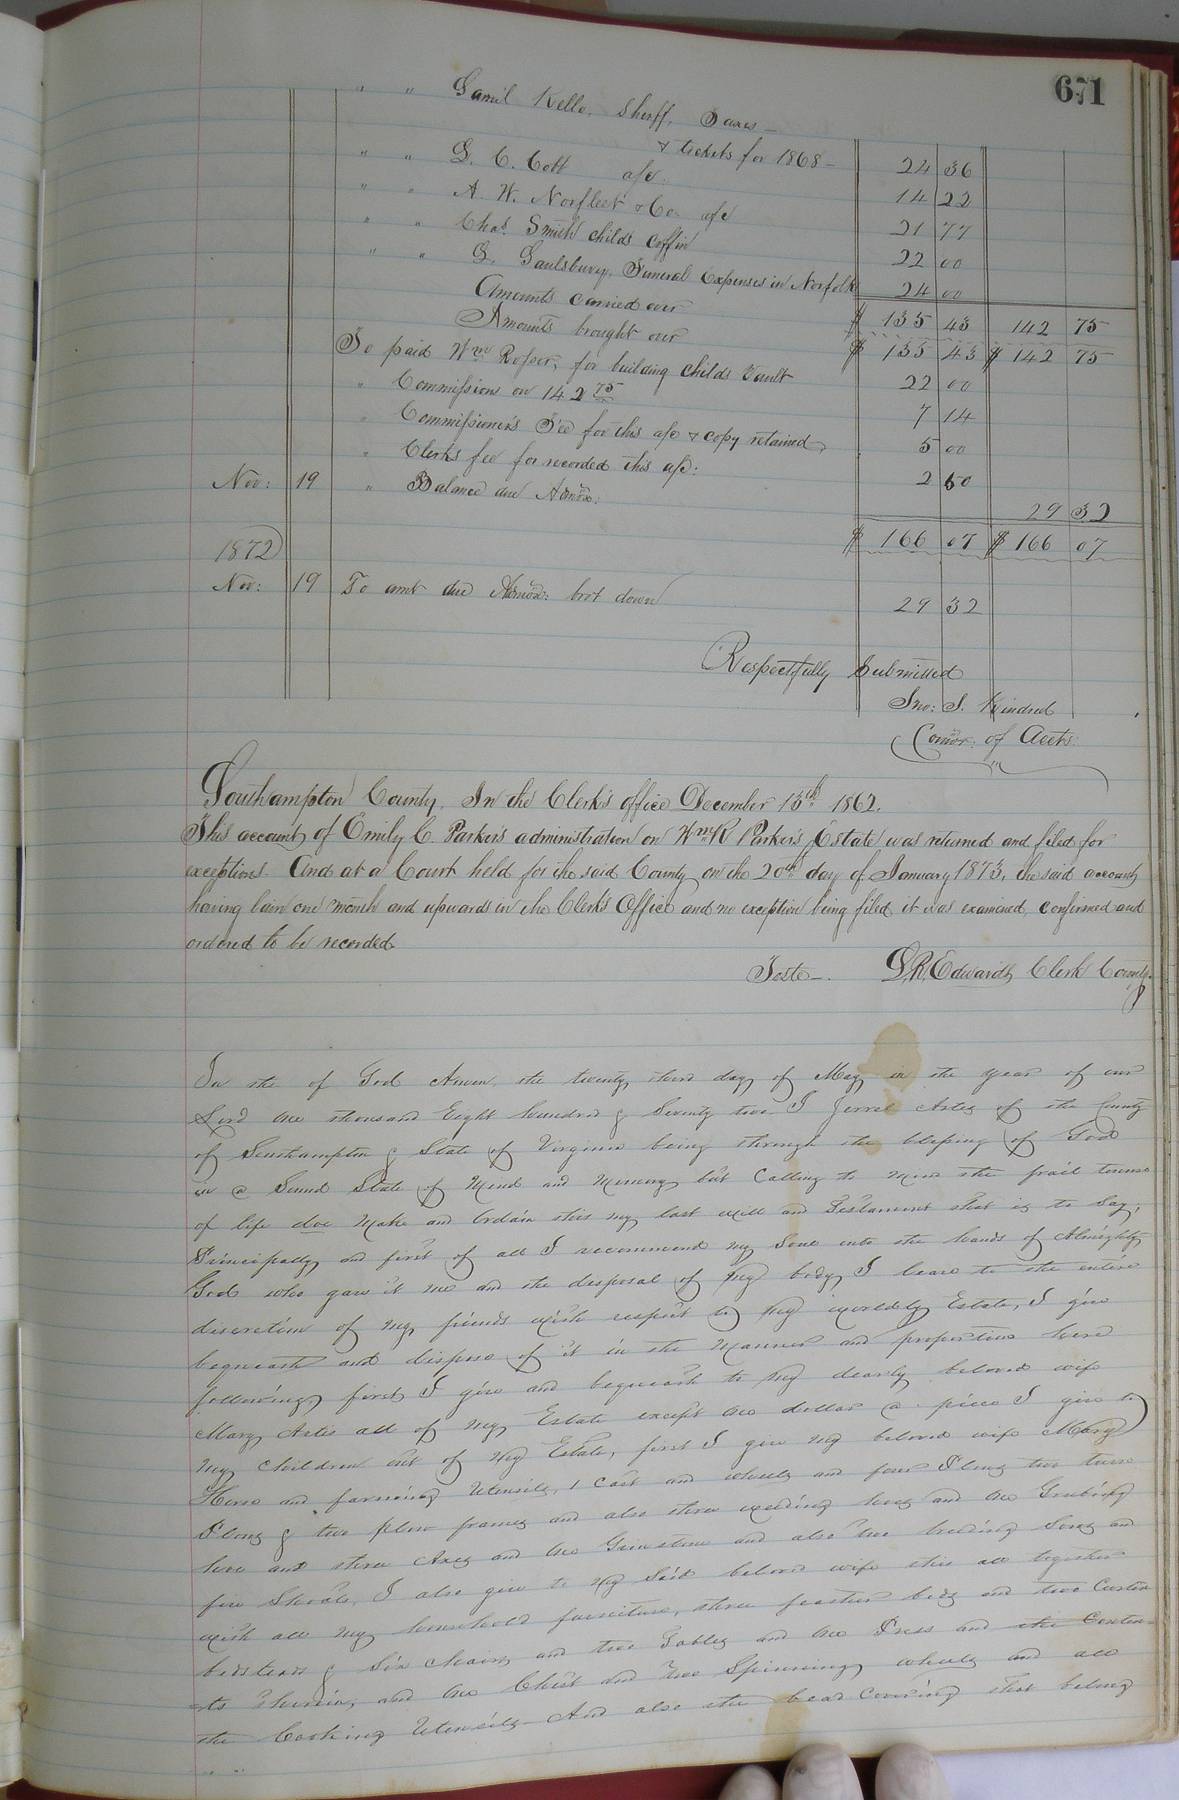 671
" " Saml Kello, Sheff, Taxes
& tickets for 1868 – 24 36
" " G. C. Cobb a/c 14 22
" " A. W. Norfleet & Co. a/c 21 77
" " Chas. Smith childs coffin 22 00
" " G. Saulsbury, Funeral Expenses in Norfolk 24 00
Amounts carried over $ 135 43 142 75
Amounts brought over $ 135 43 $ 142 75
To paid Wm Rosser, for building childs Vault 22 00
" Commissions on 142 75 7 14
" Commissioner's Fee for this a/c & copy retained, 5 00
" Clerks fee for recorded this a/c: 2 50
Nov: 19 " Balance due Admox: 29 32
$ 166 07 $ 166 07
1872
Nov: 19 To amt due Admox: brot down 29 32
Respectfully Submitted
Jno: S. Kindred
Comr. of Accts.
Southampton County. In the Clerk's office December 15th 1862.
This account of Emily C. Parker's administration on Wm R Parker's Estate was returned and filed for
exceptions. And at a Court held for the said County on the 20th day of January 1873, the said account
having lain one month and upwards in the Clerk's Office and no exception being filed it was examined, confirmed and
ordered to be recorded
Teste –. L. R. Edwards Clerk County.
In the of God Amen, the twenty third day of May in the year of our
Lord one thousand Eight hundred & Seventy two I Jerrel Artis of the County
of Southampton & State of Virginia being through the blessing of God
in a Sound State of Mind and Memory but Calling to Mind the frail tenure
of life doe Make and Ordain this my last will and Testament that is to Say,
Principally and first of all I recommend my Soul into the hands of Almighty
God who gave it me and the disposal of my body I leave to the entire
discretion of my friends with respect to my worldly Estate, I give
bequeath and dispose of it in the Manner and proportion here
following, first I give and bequeath to my dearly beloved wife
Mary Artis all of my Estate except one dollar a piece I give to
my children out of my Estate, first I give my beloved wife Mary
Horse and farming Utensils, 1 Cart and wheels and four Plows two turn
Plows & two plow frames and also three weeding hoes and one Grubing
hoe and three Axes and one Grinstone and also two breeding Sows and
five Shoats, I also give to my Said beloved wife this all together
with all my household furniture, three feather beds and two Curten
bedsteads & Six chairs and two Tables and one Press and the Conten-
-ts therein, and one Chest and two Spinning wheels and all
the Cooking Utensils And also the bead covering that belong